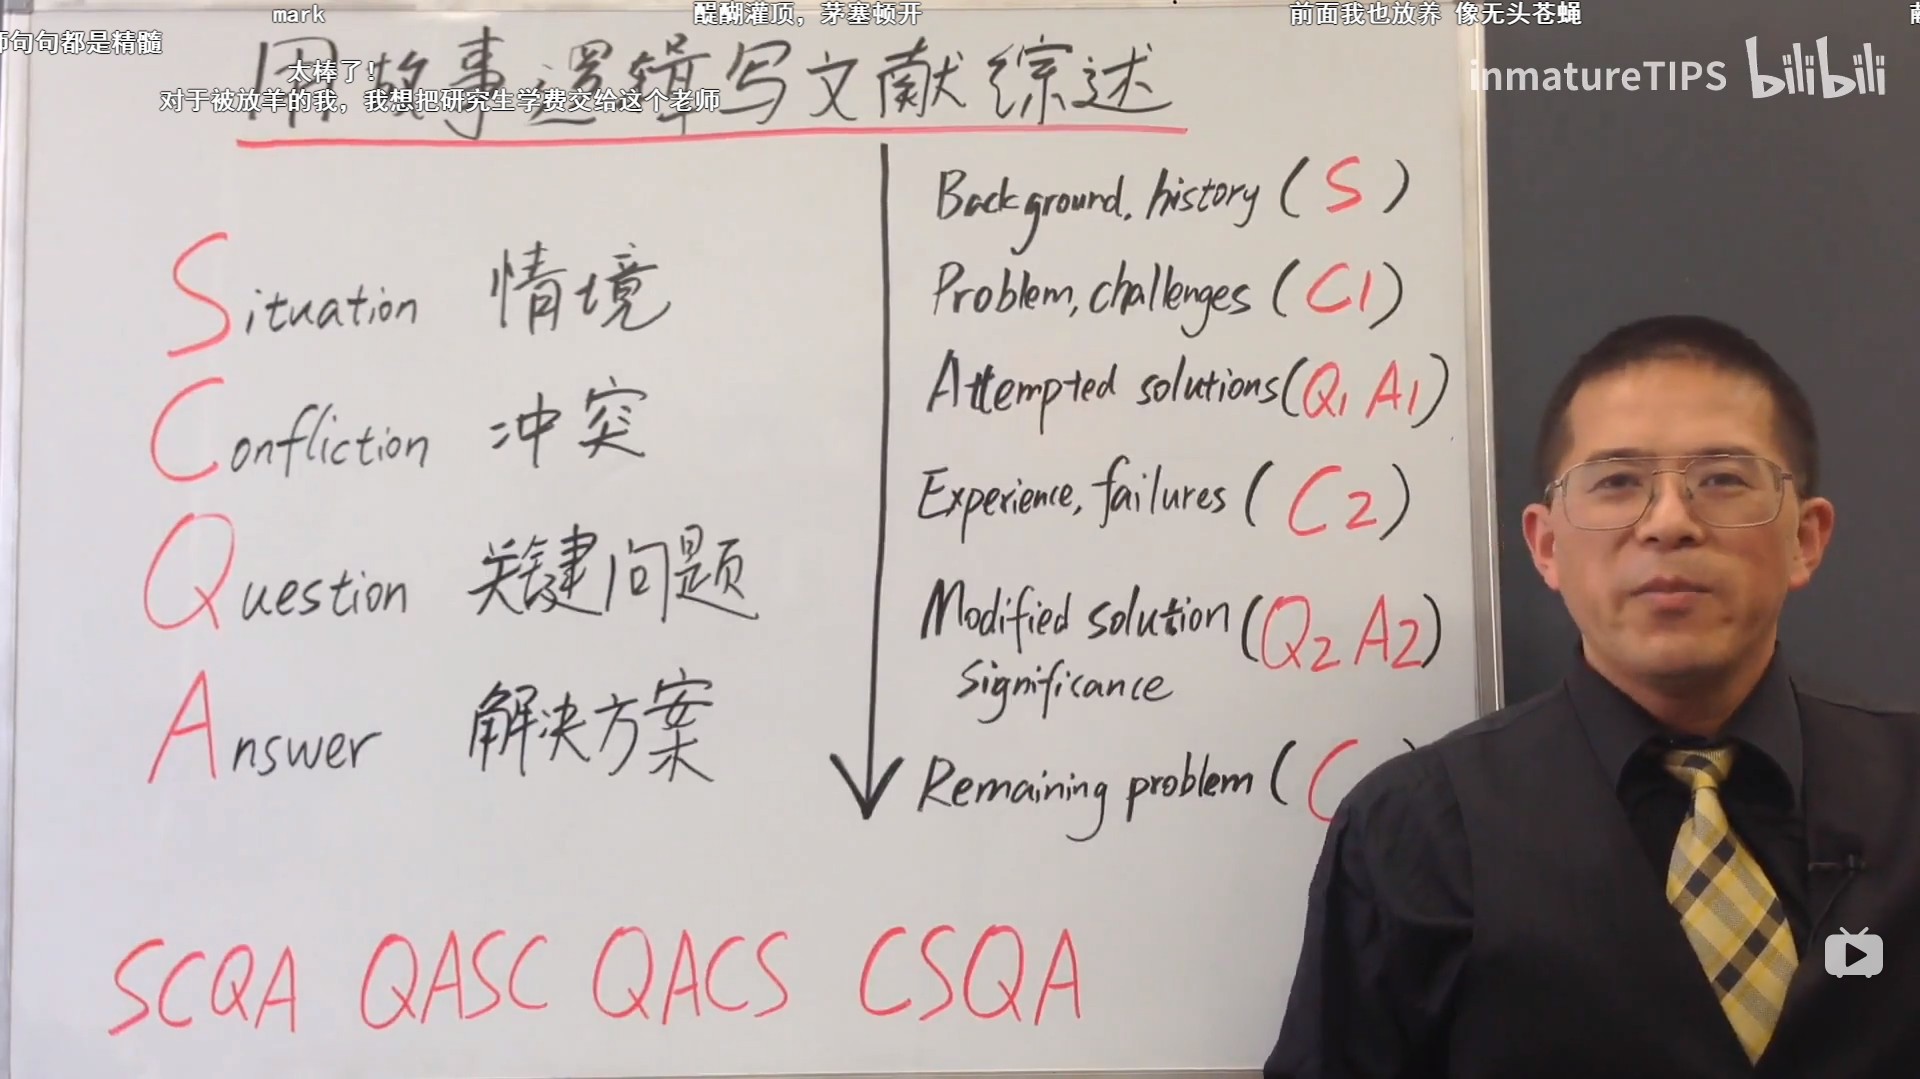 mark
醍醐灌顶，茅塞顿开
前面我也放养 像无头苍蝇
师句句都是精髓
太棒了！
对于被放羊的我，我想把研究生学费交给这个老师
inmatureTIPS bilibili
用故事逻辑写文献综述
Situation 情境
Confliction 冲突
Question 关键问题
Answer 解决方案
Background, history (S)
Problem, challenges (C1)
Attempted solutions (Q1 A1)
Experience, failures (C2)
Modified solution (Q2 A2)
significance
Remaining problem (C
SCQA QASC QACS CSQA